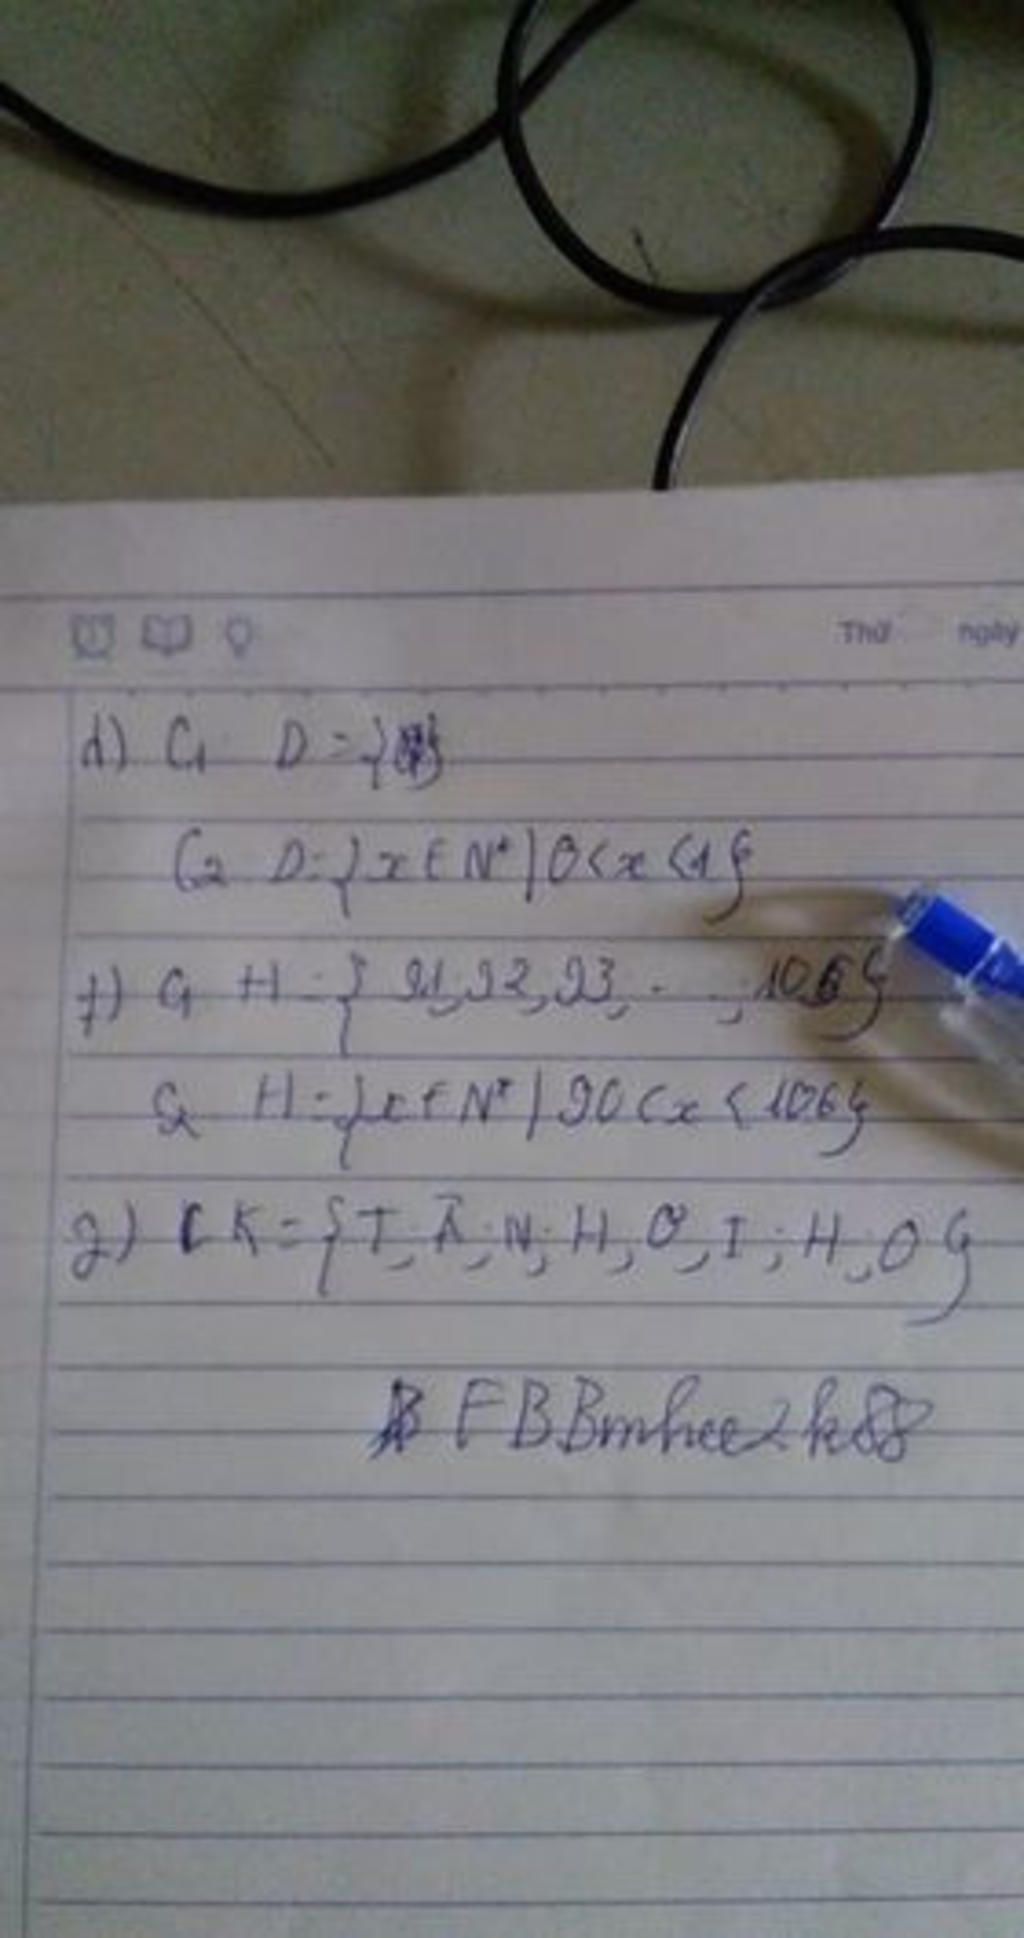 Thứ ngày
d) C1 D = { }
C2 D = { x ∈ N* | 0 < x < 1 }
f) C1 H = { 91, 92, 93, . . ., 106 }
C2 H = { x ∈ N* | 90 < x < 106 }
g) K = { T; Ā; N; H; O; I; H; O }
FBBmhee2k88